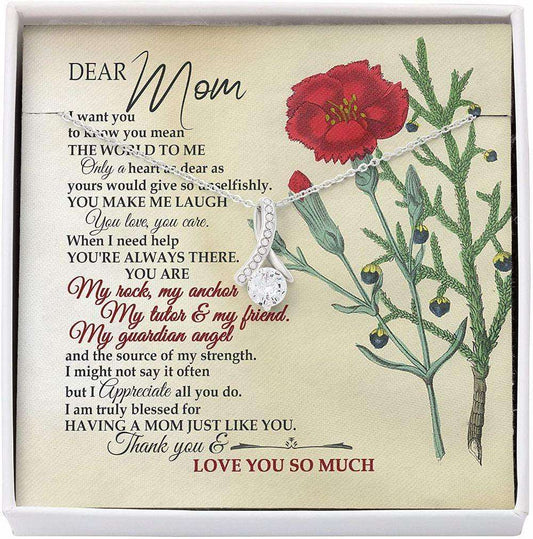 DEAR Mom
I want you
to know you mean
THE WORLD TO ME
Only a heart as dear as
yours would give so unselfishly.
YOU MAKE ME LAUGH
You love, you care.
When I need help
YOU'RE ALWAYS THERE.
YOU ARE
My rock, my anchor
My tutor & my friend.
My guardian angel
and the source of my strength.
I might not say it often
but I Appreciate all you do.
I am truly blessed for
HAVING A MOM JUST LIKE YOU.
Thank you &
LOVE YOU SO MUCH